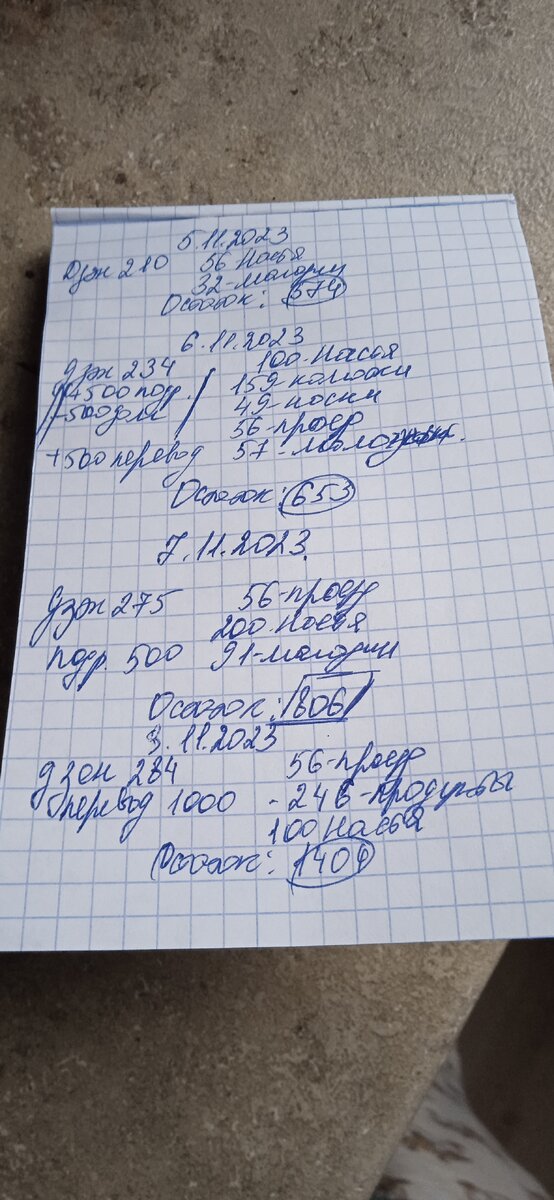 5.11.2023
Дзж 210 56 Настя
32-магазин
Остаток: 574
6.11.2023
Дзж 234 100-Настя
+500 подр. 159-колготки
-500 дом 49-носки
56-проезд
+500 перевод 57-
Остаток: 653
7.11.2023
Дзж 275 56-проезд
200 Настя
подр. 500 91-магазин
Остаток: 806
3.11.2023
Дзж 284 56-проезд
перевод 1000 -246-продукты
100 Настя
Остаток: 1409